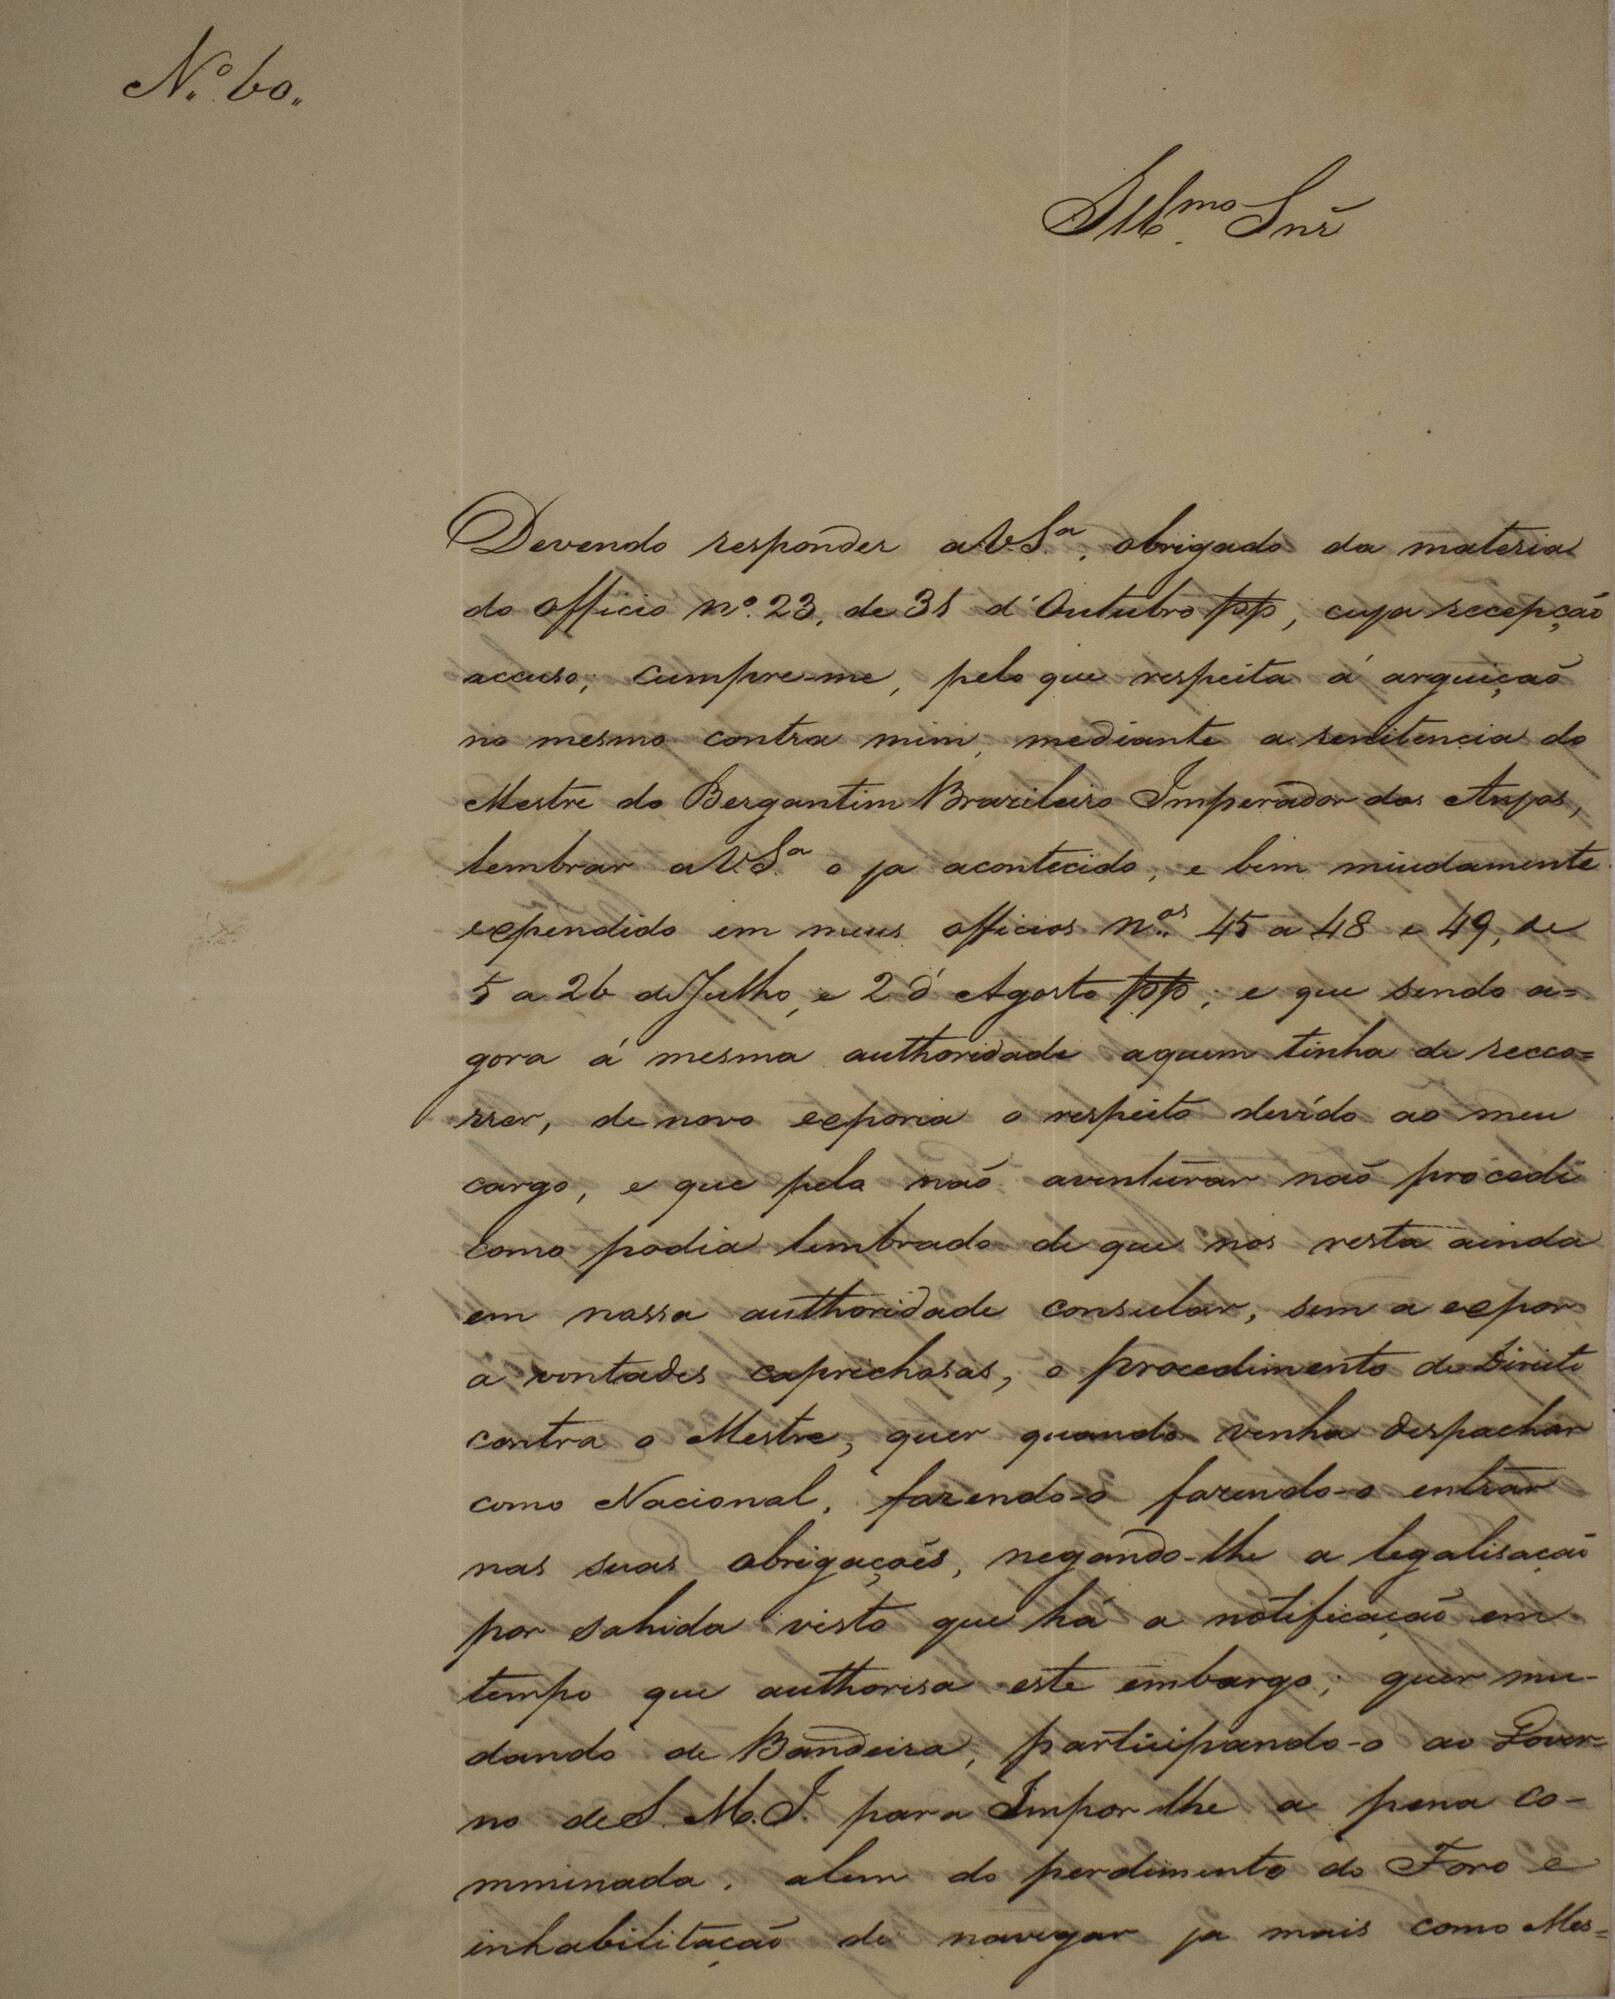 N.º 60.
Ill.mo Snr̃
Devendo responder a V. S.ª, obrigado da materia
do officio n.º 23, de 31 d'Outubro pp, cuja recepção
accuso; cumpre-me, pelo que respeita á arguição
no mesmo contra mim, mediante a renitencia do
Mestre do Bergantim Brazileiro Imperador dos Anjos,
lembrar a V. S.ª o ja acontecido, e bem miudamente
expendido em meus officios n.os 45 a 48 e 49, de
5 a 26 de Julho, e 2 d'Agosto pp; e que sendo a=
gora á mesma authoridade aquem tinha de recco=
rrer, de novo exporia o respeito devído ao meu
cargo, e que pela não aventurar não procedi
como podia lembrado de que nos resta ainda
em nossa authoridade consular, sem a expor
a vontades caprichosas, o procedimento de Direito
contra o Mestre, quer quando venha despachar
como Nacional, fazendo-o fazendo-o entrar
nas suas obrigações, negando-lhe a legalisação
por sahida visto que há a notificação em
tempo que authorisa este embargo; quer mu-
dando de Bandeira, participando-o ao Gover-
no de S. M. I. para Impor lhe a pena co-
mminada, alem do perdimento do Foro e
inhabilitação de navegar ja mais como Mes=